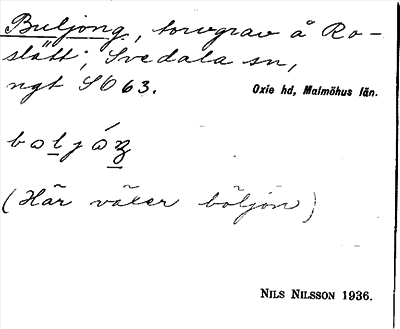 Buljong, torvgrav å Ro-
slätt, Svedala sn,
ngt SO 63. Oxie hd, Malmöhus län.
(Här växer böljon)
NILS NILSSON 1936.